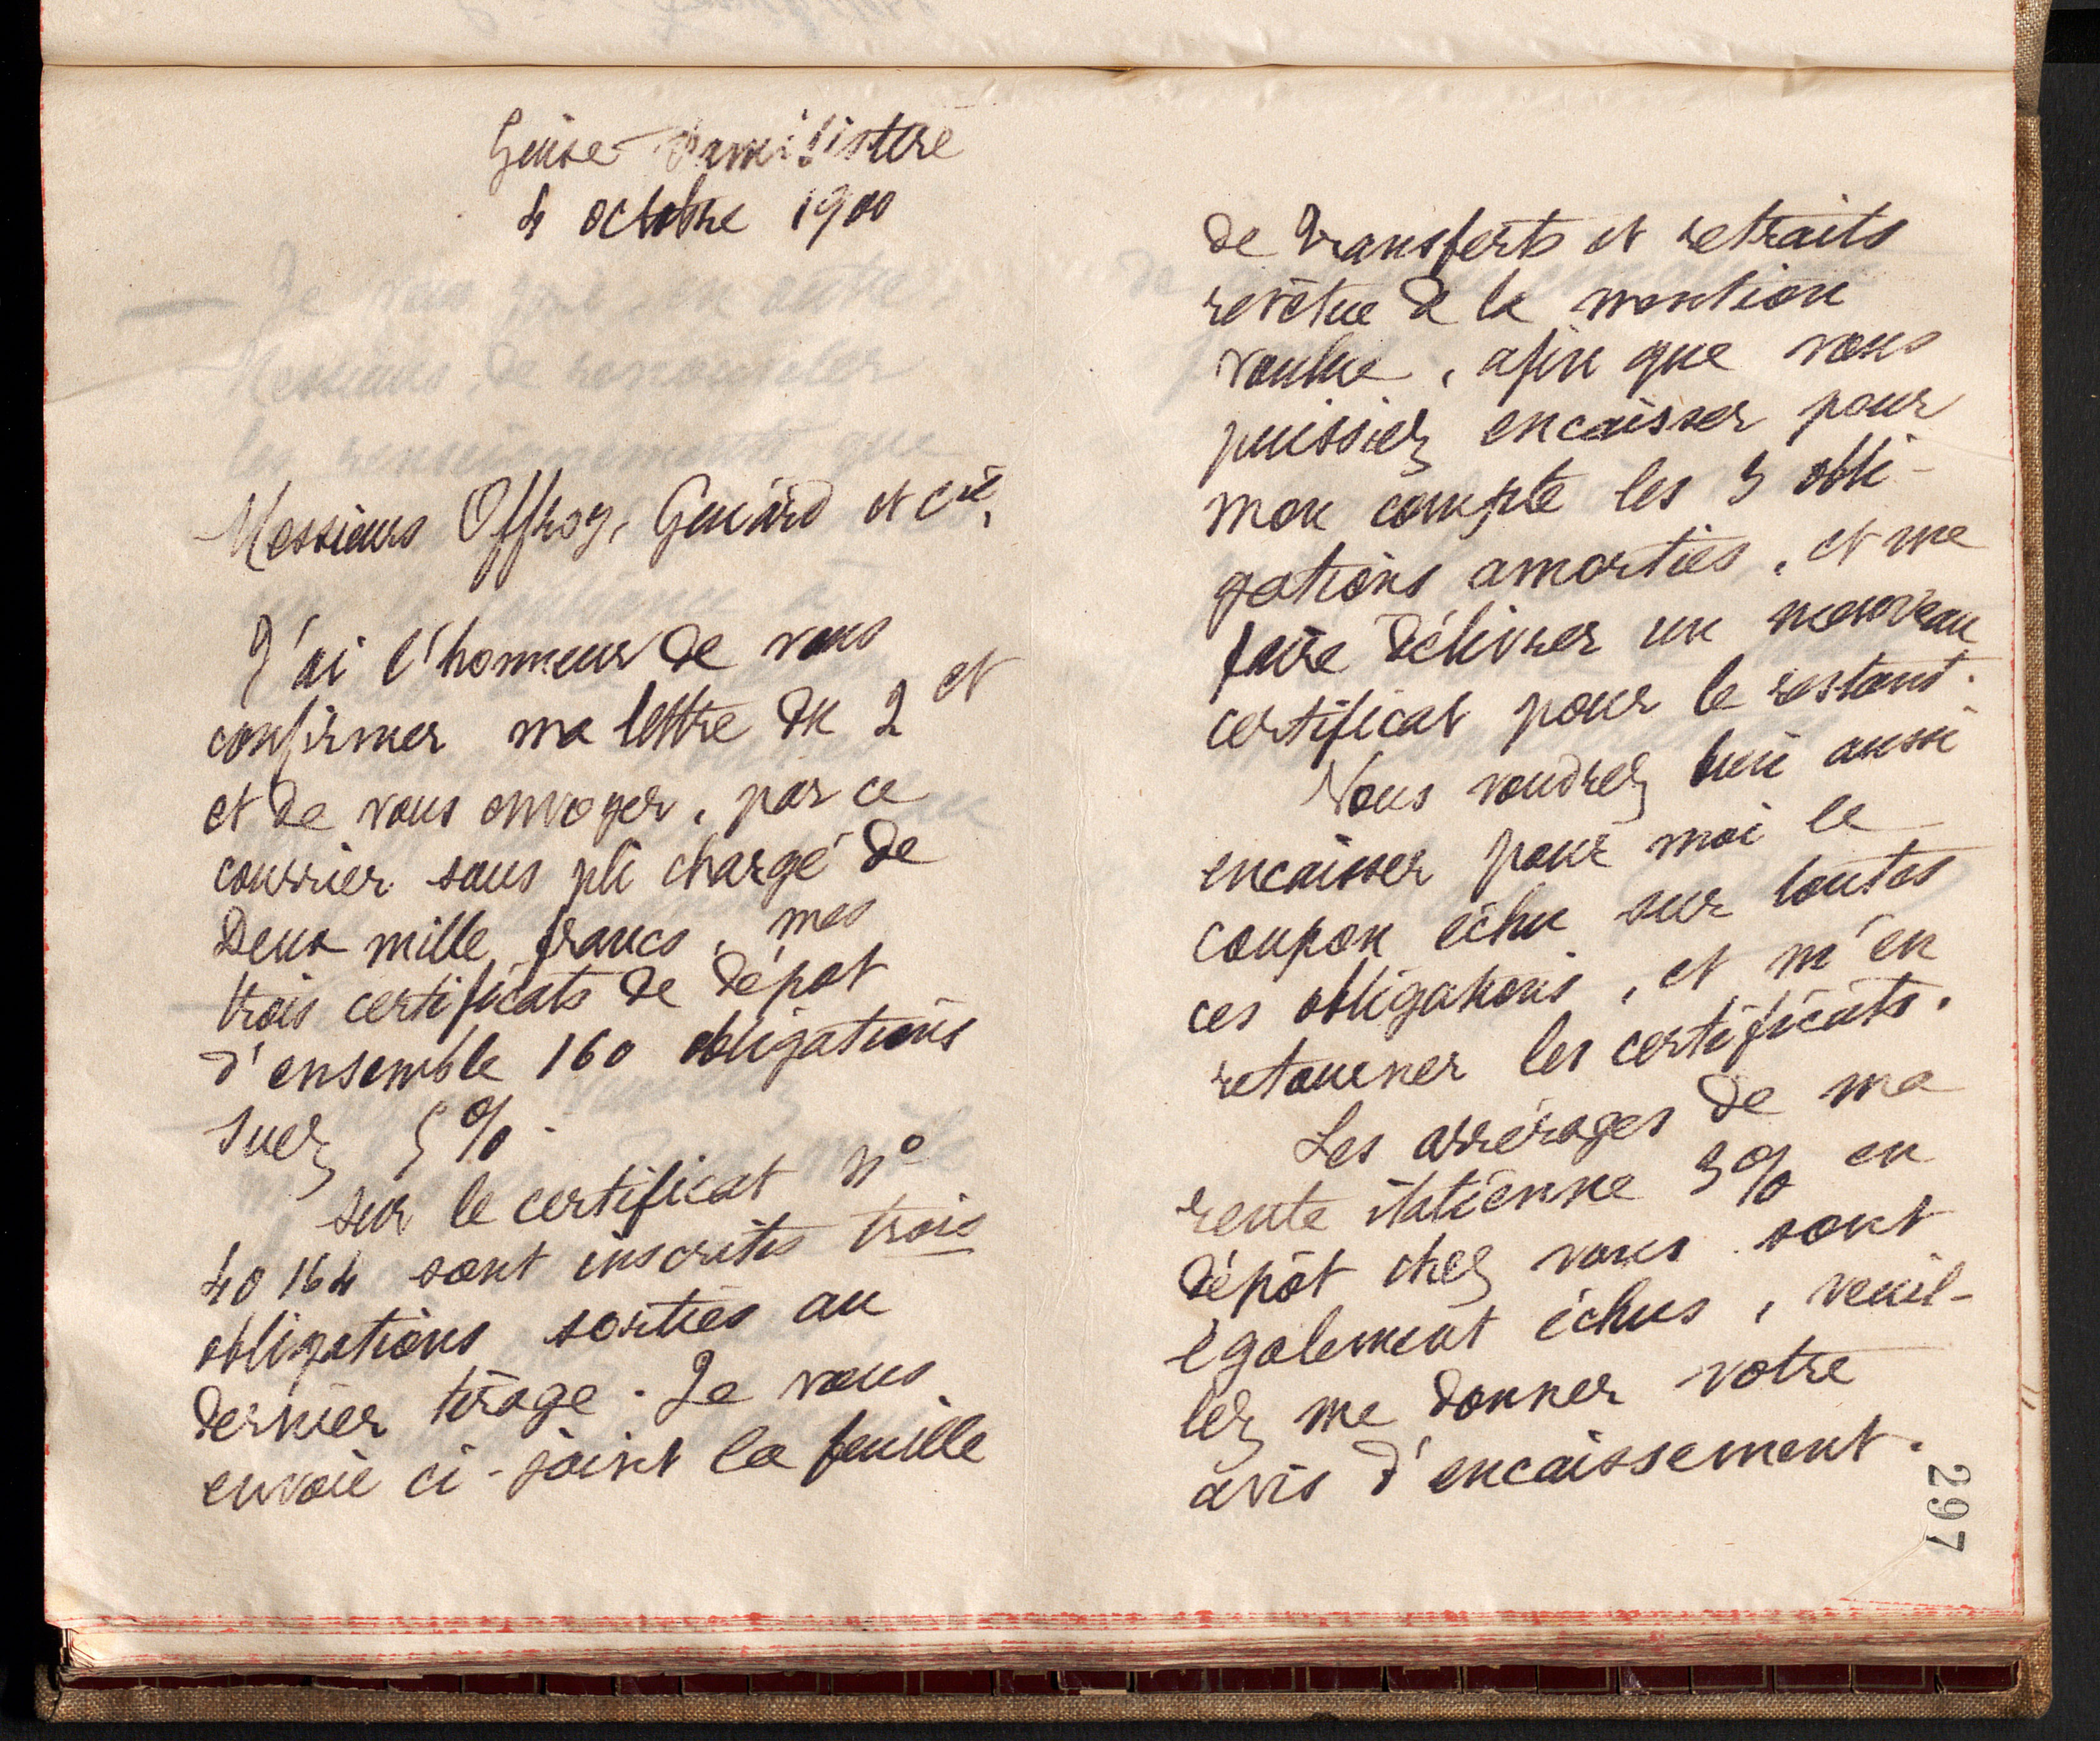 Guise Familistère
4 octobre 1900
Messieurs Offroy, Guiard et Cie,
J'ai l'honneur de vous
confirmer ma lettre du 2 ct
et de vous envoyer, par ce
courrier sous pli chargé de
Deux mille francs, mes
trois certificats de dépot
d'ensemble 160 obligations
Suez 5%.
Sur le certificat no
40164 sont inscrites trois
obligations sorties au
dernier tirage. Je vous
envoie ci-joint la feuille
de transferts et retraits
revêtue de la mention
voulue, afin que vous
puissiez encaisser pour
mon compte les 3 obli-
gations amorties, et me
faire délivrer un nouveau
certificat pour le restant.
Vous voudrez bien aussi
encaisser pour moi le
coupon échu sur toutes
ces obligations, et m'en
retourner les certificats.
Les arrérages de ma
rente italienne 5% en
dépôt chez vous sont
également échus, veuil-
lez me donner votre
avis d'encaissement.
297